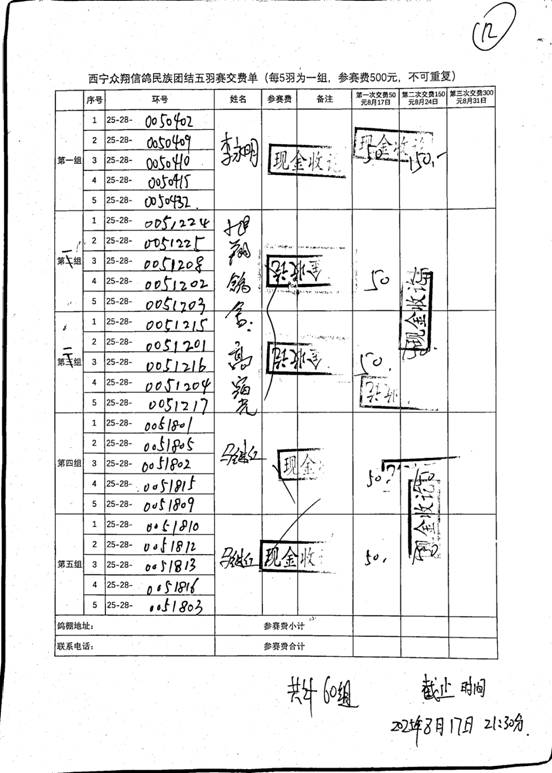 12
西宁众翔信鸽民族团结五羽赛交费单（每5羽为一组，参赛费500元，不可重复）
序号 环号 姓名 参赛费 备注 第一次交费50元8月17日 第二次交费150元8月24日 第三次交费300元8月31日
第一组 李永明 现金收讫 50 现金收讫 150.-
1 25-28- 0050402
2 25-28- 0050409
3 25-28- 0050410
4 25-28- 0050415
5 25-28- 0050432
第二组 翔鸽舍 50 现金收讫
1 25-28- 0051224
2 25-28- 0051225
3 25-28- 0051208
4 25-28- 0051202
5 25-28- 0051203
第三组 高 50.
1 25-28- 0051215
2 25-28- 0051201
3 25-28- 0051216
4 25-28- 0051204
5 25-28- 0051217
第四组 现金 50.
1 25-28- 0051801
2 25-28- 0051805
3 25-28- 0051802
4 25-28- 0051815
5 25-28- 0051809
第五组 现金收 50. 现金收讫
1 25-28- 0051810
2 25-28- 0051812
3 25-28- 0051813
4 25-28- 0051816
5 25-28- 0051803
鸽棚地址： 参赛费小计
联系电话： 参赛费合计
共计60组 截止时间
2025年8月17日 21:30分.